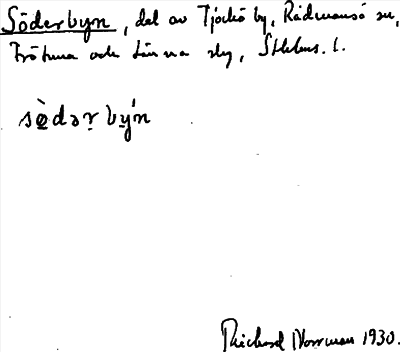 Söderbyn, del av Tjockö by, Rådmansö sn,
Frötuna och Länna skg, Sthlms. l.
sö̀dər by̆́n
Richard Norrman 1930.